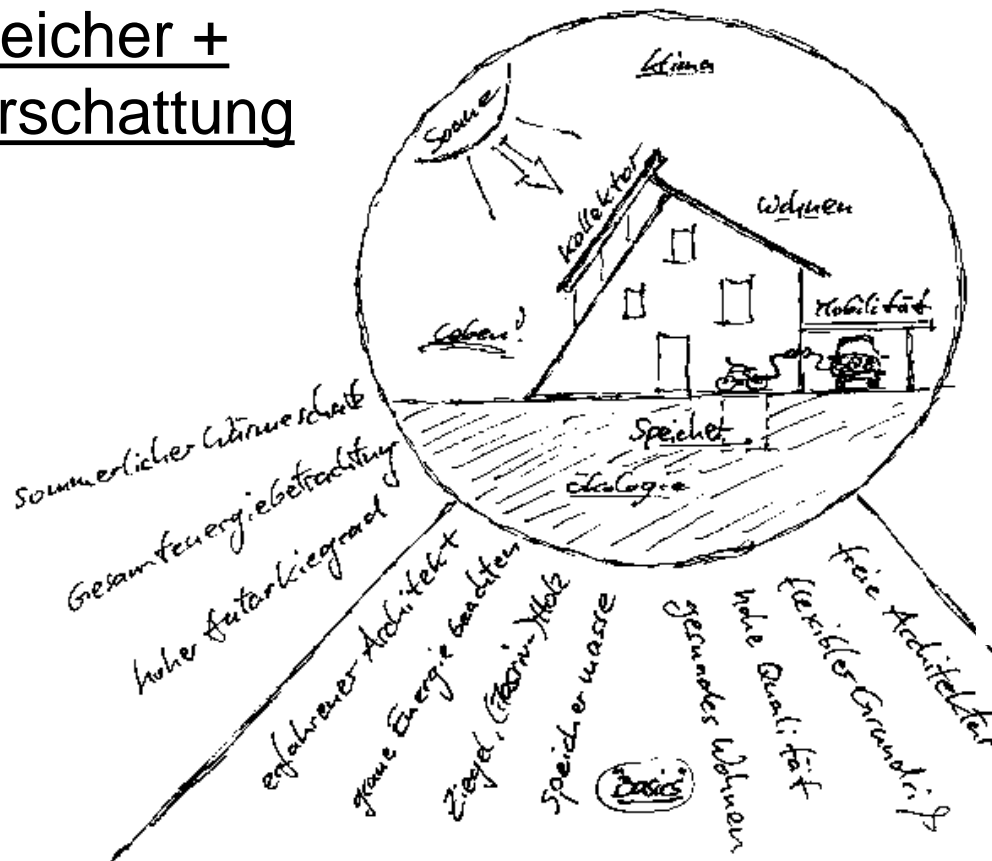 eicher +
rschattung
Klima
Sonne
Kollektor
Wohnen
Mobilität
Leben!
Speicher
Ökologie
sommerlicher Wärmeschutz
Gesamtenergiebetrachtung
hoher Autarkiegrad
erfahrener Architekt
graue Energie beachten
Ziegel, Holz
Speichermasse
"Basics"
gesundes Wohnen
hohe Qualität
flexibler Grundriß
freie Architektur